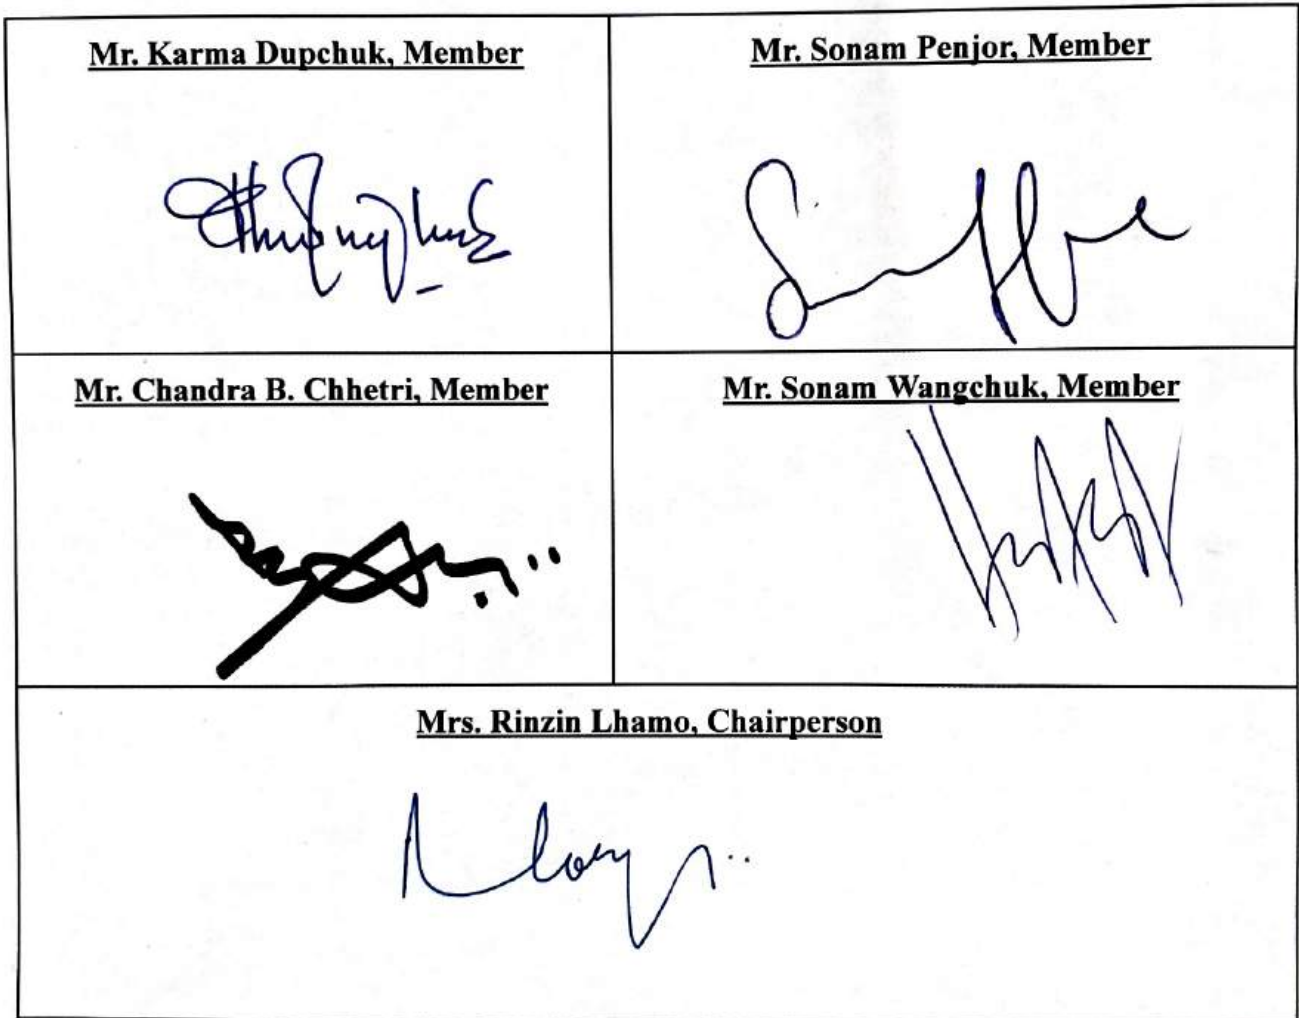 Mr. Karma Dupchuk, Member
Mr. Sonam Penjor, Member
Mr. Chandra B. Chhetri, Member
Mr. Sonam Wangchuk, Member
Mrs. Rinzin Lhamo, Chairperson